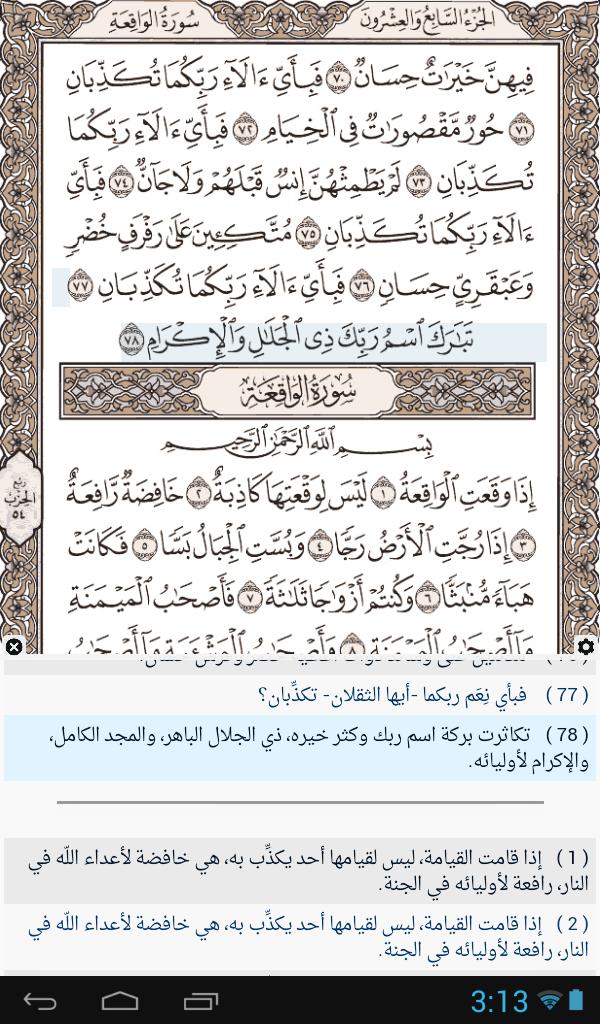 سُورَةُ الوَاقِعَةِ الجُزْءُ السَّابِعُ وَالعِشْرُونَ
فِيهِنَّ خَيْرَٰتٌ حِسَانٌ ٧٠ فَبِأَيِّ ءَالَآءِ رَبِّكُمَا تُكَذِّبَانِ
٧١ حُورٌ مَّقْصُورَٰتٌ فِي ٱلْخِيَامِ ٧٢ فَبِأَيِّ ءَالَآءِ رَبِّكُمَا
تُكَذِّبَانِ ٧٣ لَمْ يَطْمِثْهُنَّ إِنسٌ قَبْلَهُمْ وَلَا جَآنٌّ ٧٤ فَبِأَيِّ
ءَالَآءِ رَبِّكُمَا تُكَذِّبَانِ ٧٥ مُتَّكِـِٔينَ عَلَىٰ رَفْرَفٍ خُضْرٍ
وَعَبْقَرِيٍّ حِسَانٍ ٧٦ فَبِأَيِّ ءَالَآءِ رَبِّكُمَا تُكَذِّبَانِ ٧٧
تَبَٰرَكَ ٱسْمُ رَبِّكَ ذِي ٱلْجَلَٰلِ وَٱلْإِكْرَامِ ٧٨
سُورَةُ الوَاقِعَةِ
بِسْمِ ٱللَّهِ ٱلرَّحْمَٰنِ ٱلرَّحِيمِ
إِذَا وَقَعَتِ ٱلْوَاقِعَةُ ١ لَيْسَ لِوَقْعَتِهَا كَاذِبَةٌ ٢ خَافِضَةٌ رَّافِعَةٌ
٣ إِذَا رُجَّتِ ٱلْأَرْضُ رَجًّا ٤ وَبُسَّتِ ٱلْجِبَالُ بَسًّا ٥ فَكَانَتْ
هَبَآءً مُّنۢبَثًّا ٦ وَكُنتُمْ أَزْوَٰجًا ثَلَٰثَةً ٧ فَأَصْحَٰبُ ٱلْمَيْمَنَةِ
مَآ أَصْحَٰبُ ٱلْمَيْمَنَةِ ٨ وَأَصْحَٰبُ ٱلْمَشْـَٔمَةِ مَآ أَصْحَٰبُ
ربع
الحزب
٥٤
(77) فبأي نِعَم ربكما -أيها الثقلان- تكذِّبان؟
(78) تكاثرت بركة اسم ربك وكثر خيره، ذي الجلال الباهر، والمجد الكامل،
والإكرام لأوليائه.
(1) إذا قامت القيامة، ليس لقيامها أحد يكذِّب به، هي خافضة لأعداء الله في
النار، رافعة لأوليائه في الجنة.
(2) إذا قامت القيامة، ليس لقيامها أحد يكذِّب به، هي خافضة لأعداء الله في
النار، رافعة لأوليائه في الجنة.
3:13